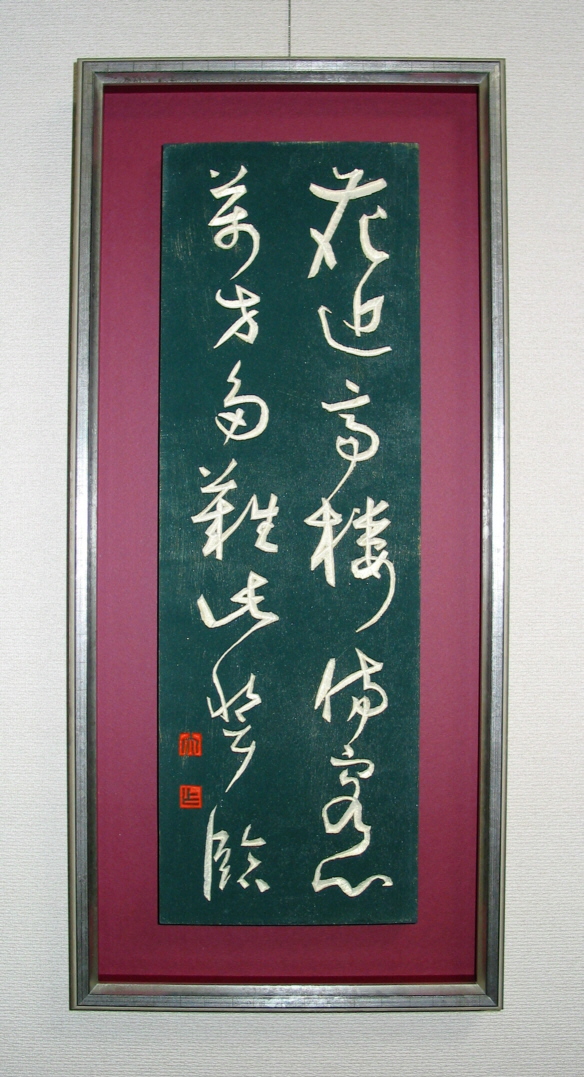 花近高楼傷客心
萬方多難此登臨